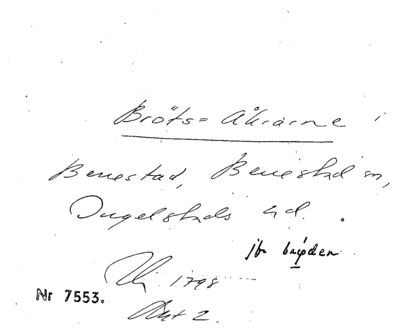 Bröts=Åkrarne i
Benestad, Benestad sn,
Ingelstads hd.
jfr bröden
1798
Nr 7553.
Akt 2.